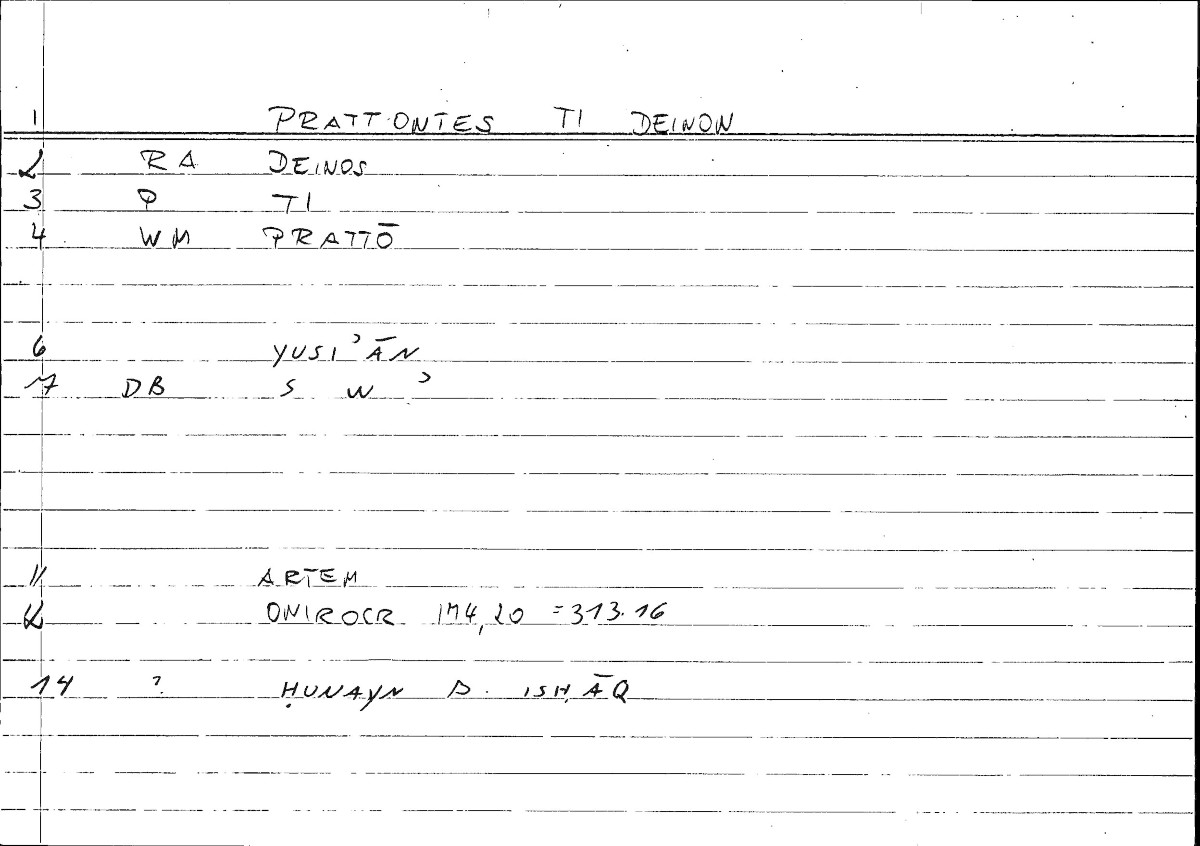 1 PRATTONTES TI DEINON
2 RA DEINOS
3 P TI
4 WM PRATTŌ
6 YUSI ʾ ĀN
7 DB S W ʾ
11 ARTEM
12 ONIROCR 174,20 = 313.16
14 ? ḤUNAYN B. ISḤĀQ